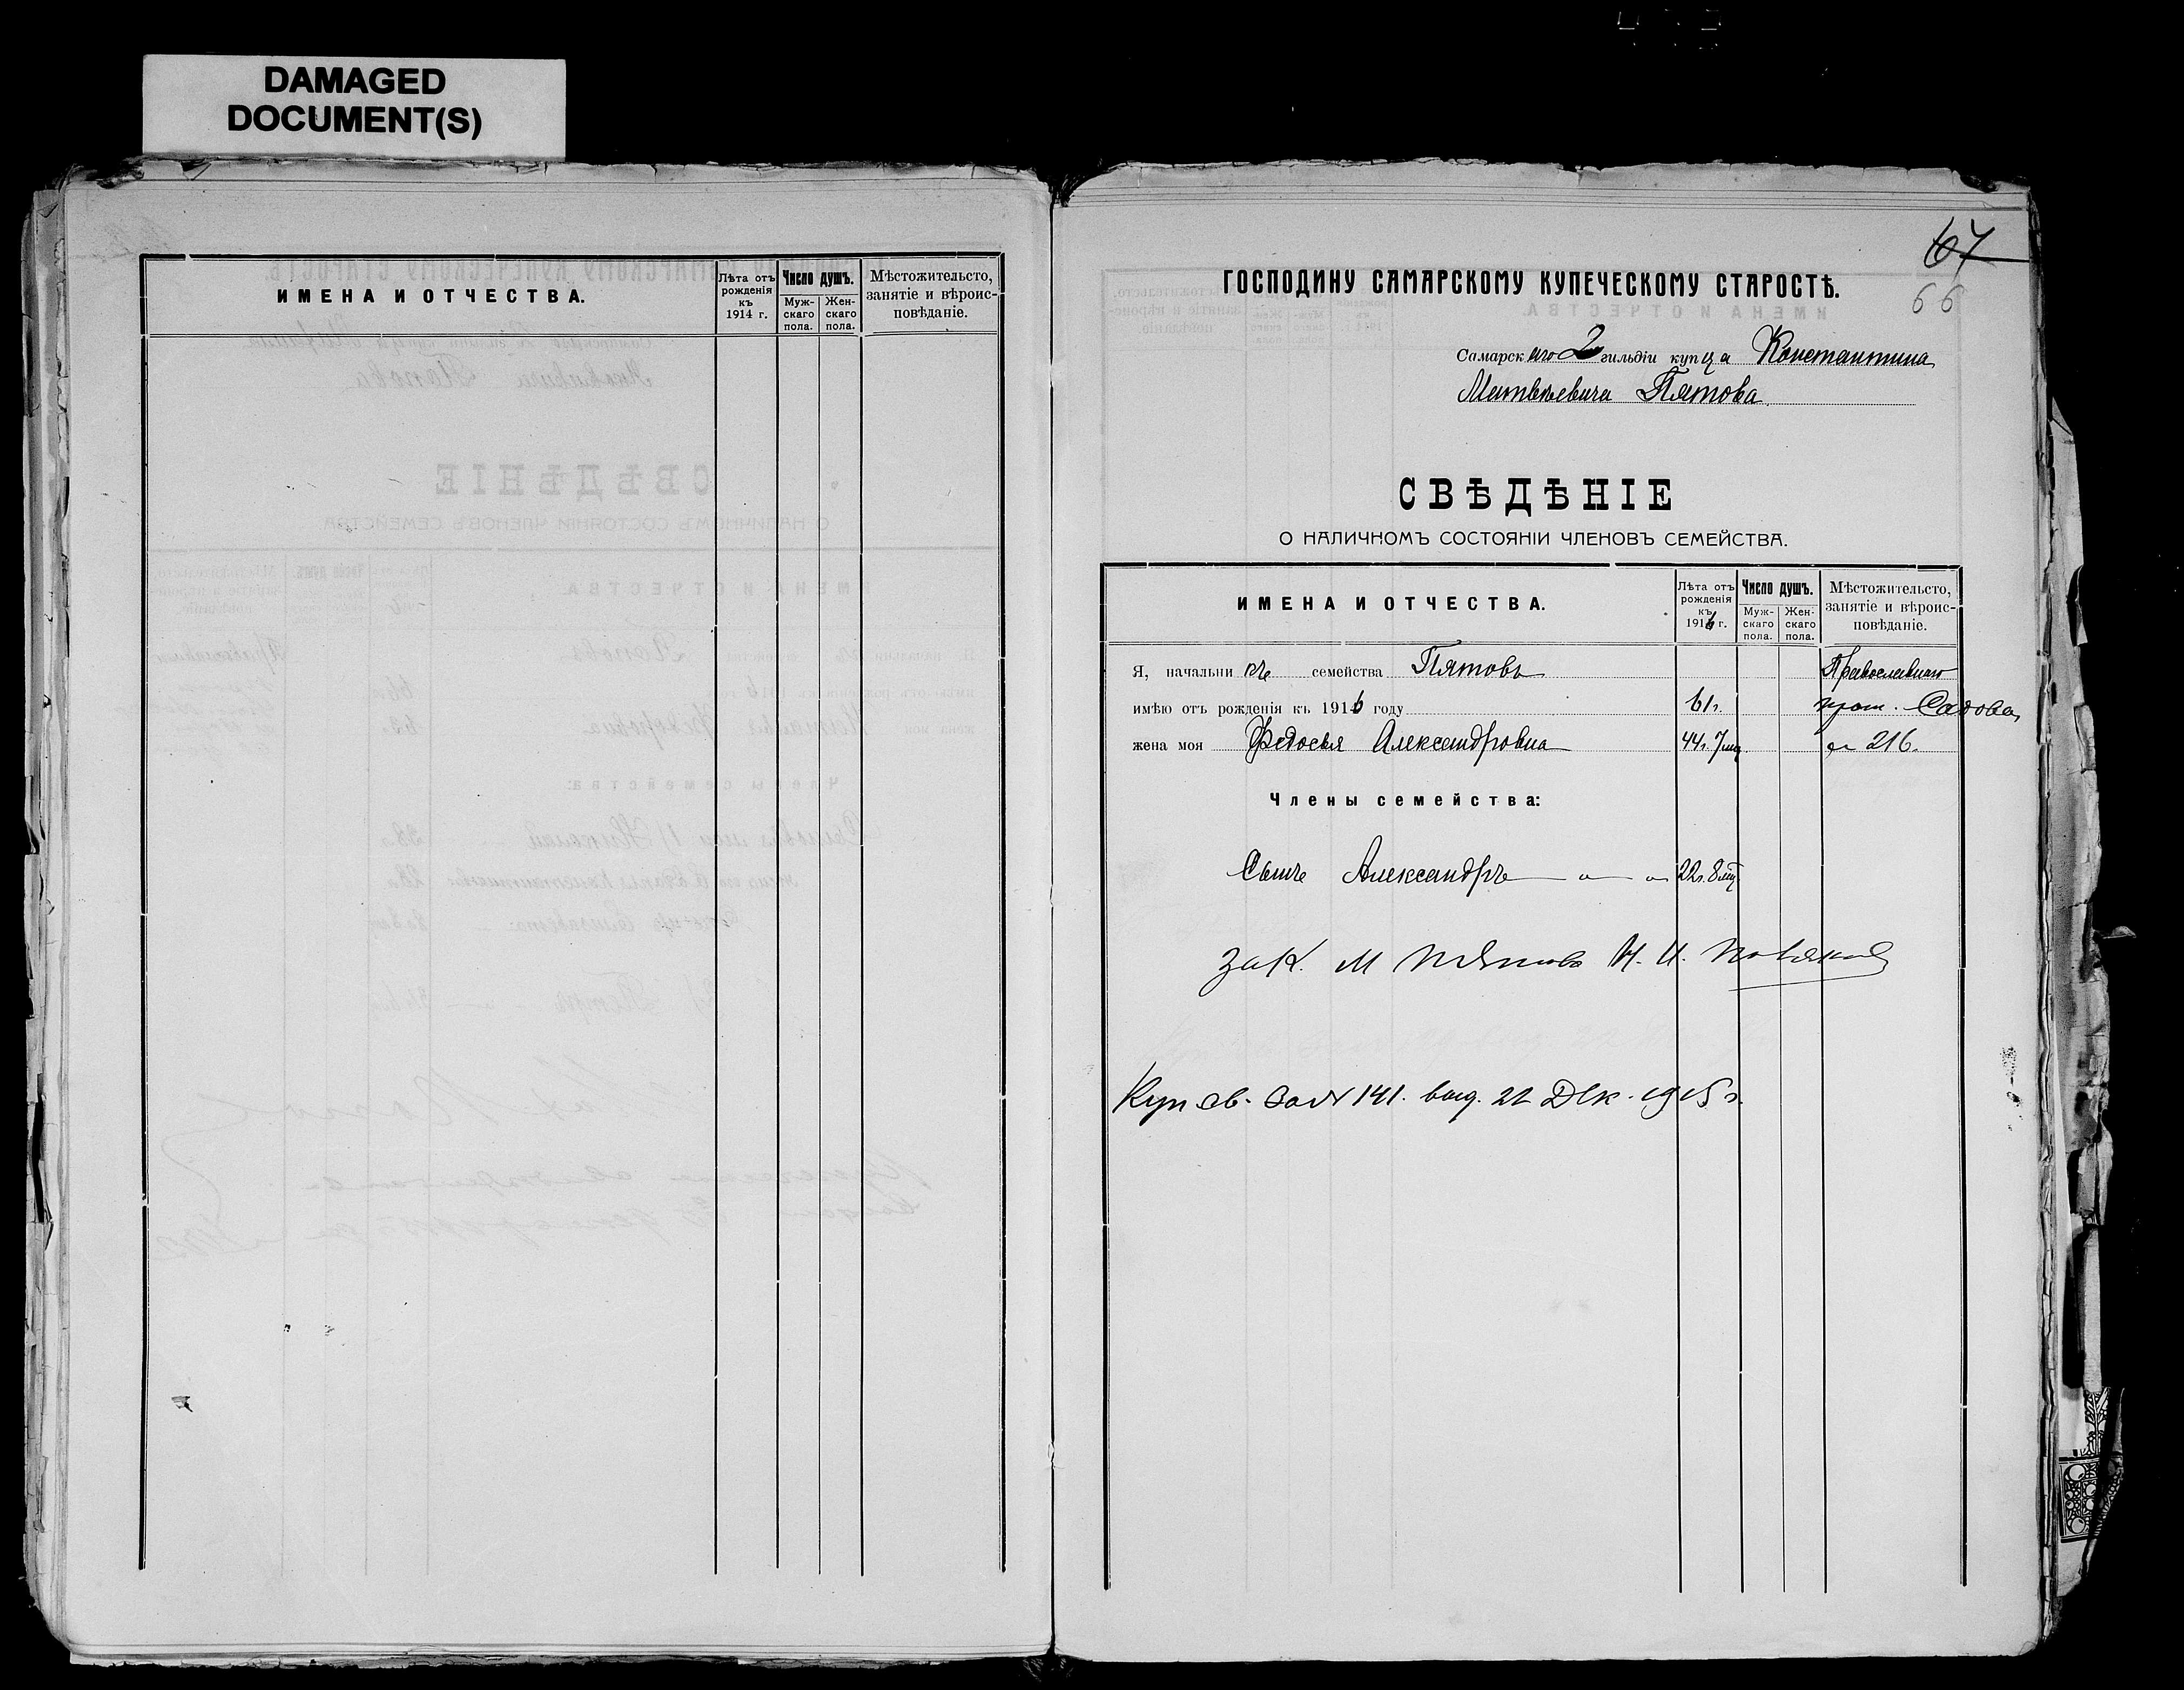 DAMAGED
DOCUMENT(S)
ИМЕНА И ОТЧЕСТВА.
Лѣта отъ рожденія къ 1914 г.
Число душъ.
Муж-скаго пола.
Жен-скаго пола.
Мѣстожительсто, занятіе и вѣроис-повѣданіе.
67
66
ГОСПОДИНУ САМАРСКОМУ КУПЕЧЕСКОМУ СТАРОСТѢ.
Самарскаго 2 гильдіи купца Константина
Матвѣевича Пятова
СВѢДѢНІЕ
О НАЛИЧНОМЪ СОСТОЯНІИ ЧЛЕНОВЪ СЕМЕЙСТВА.
ИМЕНА И ОТЧЕСТВА.
Лѣта отъ рожденія къ 1916 г.
Число душъ.
Муж-скаго пола.
Жен-скаго пола.
Мѣстожительсто, занятіе и вѣроис-повѣданіе.
Я, начальникъ семейства Пятовъ Православнаго
имѣю отъ рожденія къ 1916 году 61 г. Садовая
жена моя Федосья Александровна 44 г. 7 мц 216.
Члены семейства:
Сынъ Александръ 22 г. 8 мц
за К. М Пятова
Куп св. за № 141. выд. 22 Дек. 1915 г.